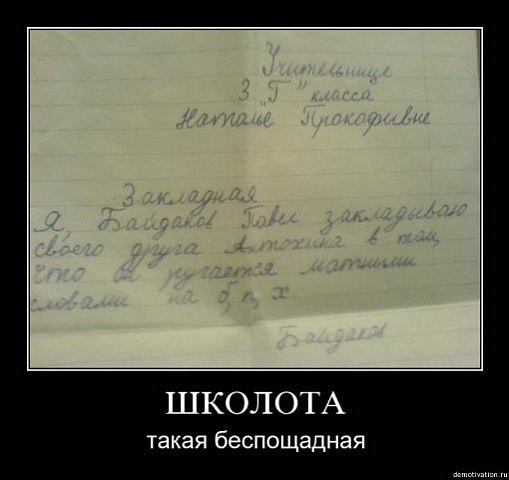 Учительнице
3 "Г" класса
Наталье Прокофьвне
Закладная
Я, Байдаков Павел закладываю
своего друга Антохина в том,
что он ругается матными
словами на б, п, х.
Байдаков
ШКОЛОТА
такая беспощадная
demotivation.ru